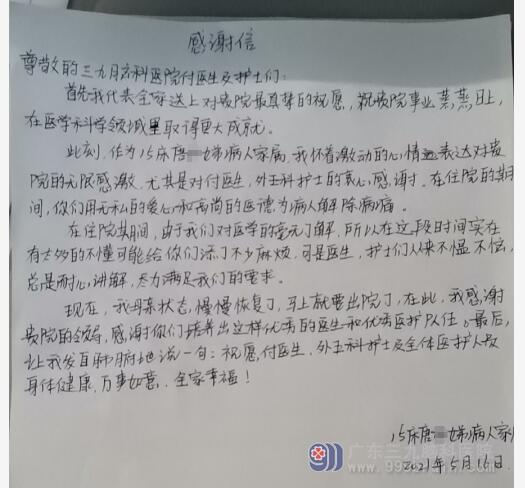 感谢信
尊敬的三九脑科医院付医生及护士们:
首先我代表全家送上对贵院最真挚的祝愿,祝贵院事业蒸蒸日上,
在医学科学领域里取得更大成就。
此刻,作为15床唐 娣病人家属,我怀着激动的心情表达对贵
院的无限感激,尤其是对付医生,外五科护士的衷心感谢。在住院的期
间,你们用无私的爱心和高尚的医德为病人解除病痛。
在住院其期间,由于我们对医学的毫无了解,所以在这段时间实在
有太多的不懂可能给你们添了不少麻烦,可是医生,护士们从来不愠不恼,
总是耐心讲解,尽力满足我们的要求。
现在,我母亲状态,慢慢恢复了,马上就要出院了,在此,我感谢
贵院的领导,感谢你们培养出这样优秀的医生和优秀医护队伍。最后,
让我发自肺腑地说一句:祝愿,付医生、外五科护士及全体医护人员
身体健康,万事如意,全家幸福!
15床唐 娣病人家
2021年5月16日.
广东三九脑科医院